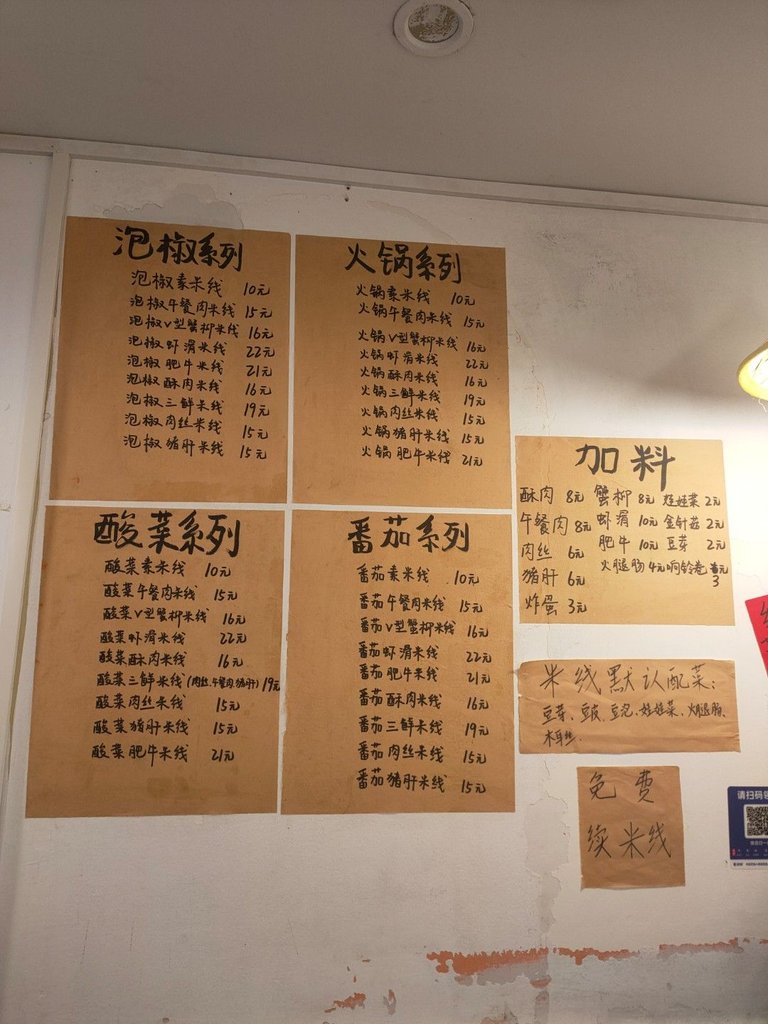 泡椒系列
泡椒素米线 10元
泡椒午餐肉米线 15元
泡椒V型蟹柳米线 16元
泡椒虾滑米线 22元
泡椒肥牛米线 21元
泡椒酥肉米线 16元
泡椒三鲜米线 19元
泡椒肉丝米线 15元
泡椒猪肝米线 15元
火锅系列
火锅素米线 10元
火锅午餐肉米线 15元
火锅V型蟹柳米线 16元
火锅虾滑米线 22元
火锅酥肉米线 16元
火锅三鲜米线 19元
火锅肉丝米线 15元
火锅猪肝米线 15元
火锅肥牛米线 21元
酸菜系列
酸菜素米线 10元
酸菜午餐肉米线 15元
酸菜V型蟹柳米线 16元
酸菜虾滑米线 22元
酸菜酥肉米线 16元
酸菜三鲜米线(肉丝.午餐肉.猪肝) 19元
酸菜肉丝米线 15元
酸菜猪肝米线 15元
酸菜肥牛米线 21元
番茄系列
番茄素米线 10元
番茄午餐肉米线 15元
番茄V型蟹柳米线 16元
番茄虾滑米线 22元
番茄肥牛米线 21元
番茄酥肉米线 16元
番茄三鲜米线 19元
番茄肉丝米线 15元
番茄猪肝米线 15元
加料
酥肉 8元 蟹柳 8元 娃娃菜 2元
午餐肉 8元 虾滑 10元 金针菇 2元
肉丝 6元 肥牛 10元 豆芽 2元
猪肝 6元 火腿肠 4元 响铃卷 3元
炸蛋 3元
米线默认配菜:
豆芽、豆皮、豆泡、娃娃菜、火腿肠、
木耳丝.
免费
续米线
请扫码